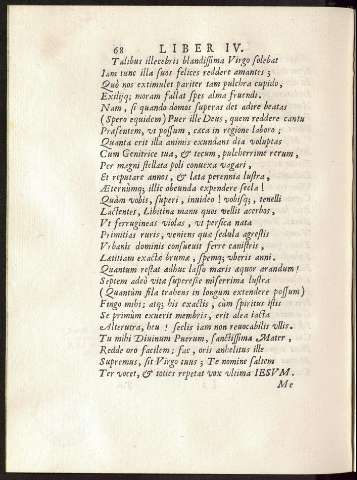 68 LIBER IV.
Talibus illecebris blandissima Virgo solebat
Iam tunc illa suos felices reddere amantes;
Quò nos extimulet pariter tam pulchra cupido,
Exiliq; moram fallat spes alma fruendi.
Nam, si quando domos superas det adire beatas
(Spero equidem) Puer ille Deus, quem reddere cantu
Præsentem, vt possum, cæca in regione laboro;
Quanta erit illa animis exundans dia voluptas
Cum Genitrice tua, & tecum, pulcherrime rerum,
Per magni stellata poli conuexa vagari,
Et reputare annos, & lata perennia lustra,
Æternùmq; illic obeunda expendere secla!
Quàm vobis, superi, inuideo! vobisq;, tenelli
Lactentes, Libitina manu quos vellit acerbos,
Vt ferrugineas violas, vt persica nata
Primitias ruris, veniens quæ sedula agrestis
Vrbanis dominis consueuit ferre canistris,
Lætitiam exactæ brumæ, spemq; vberis anni.
Quantum restat adhuc lasso maris æquor arandum!
Septem adeò vitæ superesse miserrima lustra
(Quantùm fila trahens in longum extendere possum)
Fingo mihi; atq; his exactis, cùm spiritus istis
Se primùm exuerit membris, erit alea iacta
Alterutra, heu! seclis iam non reuocabilis vllis.
Tu mihi Diuinum Puerum, sanctissima Mater,
Redde oro facilem; fac, oris anhelitus ille
Supremus, sit Virgo tuus; Te nomine saltem
Ter vocet, & toties repetat vox vltima IESVM.
Me